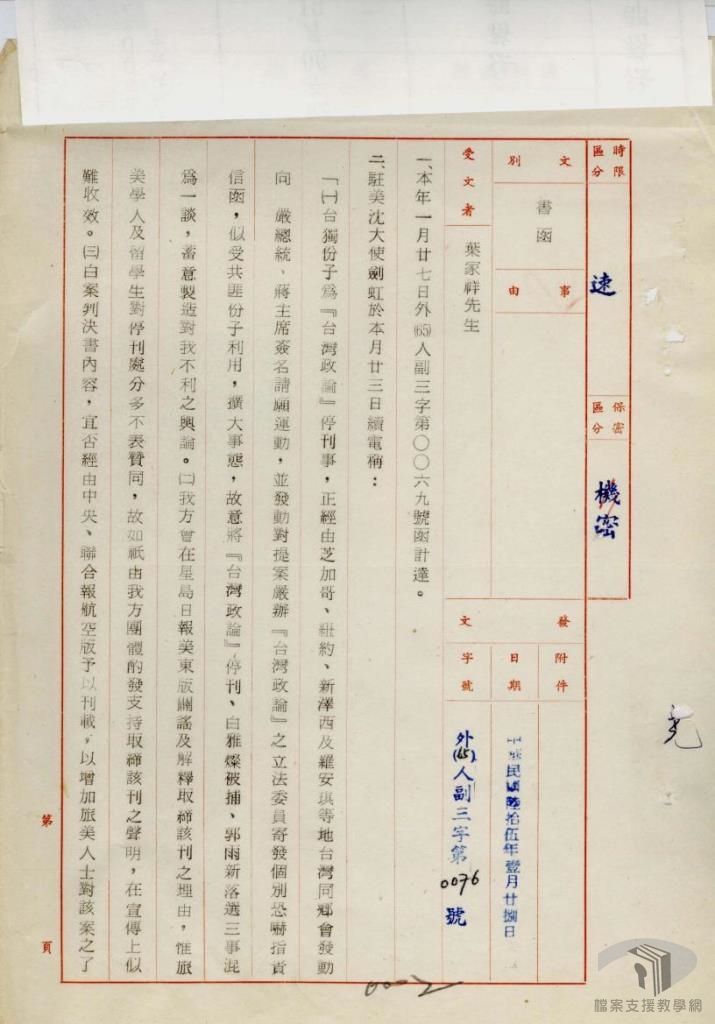 時限區分
速
保密區分
機密
文別
書函
事由
受文者
葉家祥先生
發文
附件
日期
中華民國陸拾伍年壹月廿捌日
字號
外(65)人副三字第0076號
一、本年一月廿七日外(65)人副三字第〇〇六九號函計達。
二、駐美沈大使劍虹於本月廿三日續電稱：
「㈠台獨份子為『台灣政論』停刊事，正經由芝加哥、紐約、新澤西及羅安琪等地台灣同鄉會發動
向　嚴總統、蔣主席簽名請願運動，並發動對提案嚴辦『台灣政論』之立法委員寄發個別恐嚇指責
信函，似受共匪份子利用，擴大事態，故意將『台灣政論』停刊、白雅燦被捕、郭雨新落選三事混
為一談，蓄意製造對我不利之輿論。㈡我方曾在星島日報美東版闢謠及解釋取締該刊之理由，惟旅
美學人及留學生對停刊處分多不表贊同，故如祇由我方團體的發支持取締該刊之聲明，在宣傳上似
難收效。㈢白案判決書內容，宜否經由中央、聯合報航空版予以刊載，以增加旅美人士對該案之了
第　頁
0002
檔案支援教學網